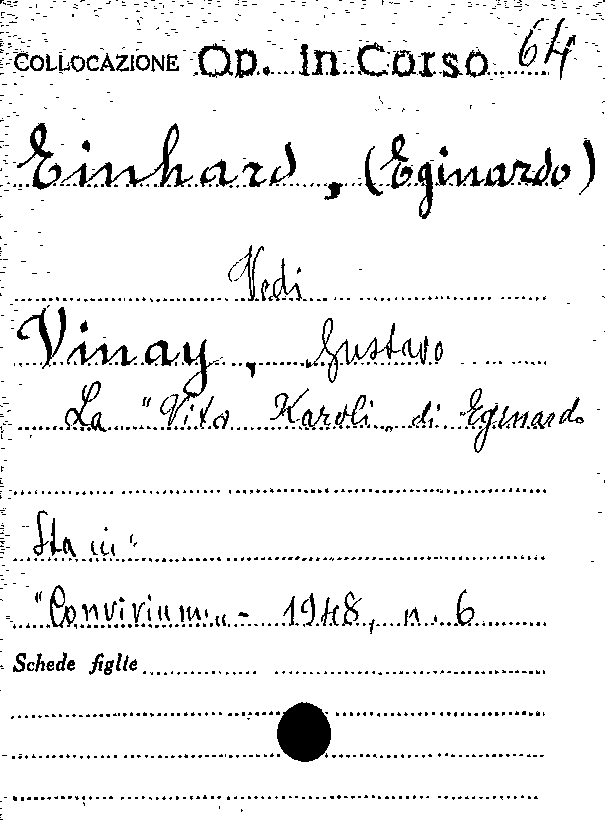 COLLOCAZIONE Op. in Corso 64
Einhard, (Eginardo)
Vedi
Vinay, Gustavo
La "Vita Karoli" di Eginardo
Sta in:
"Convivium" - 1948, n. 6
Schede figlie